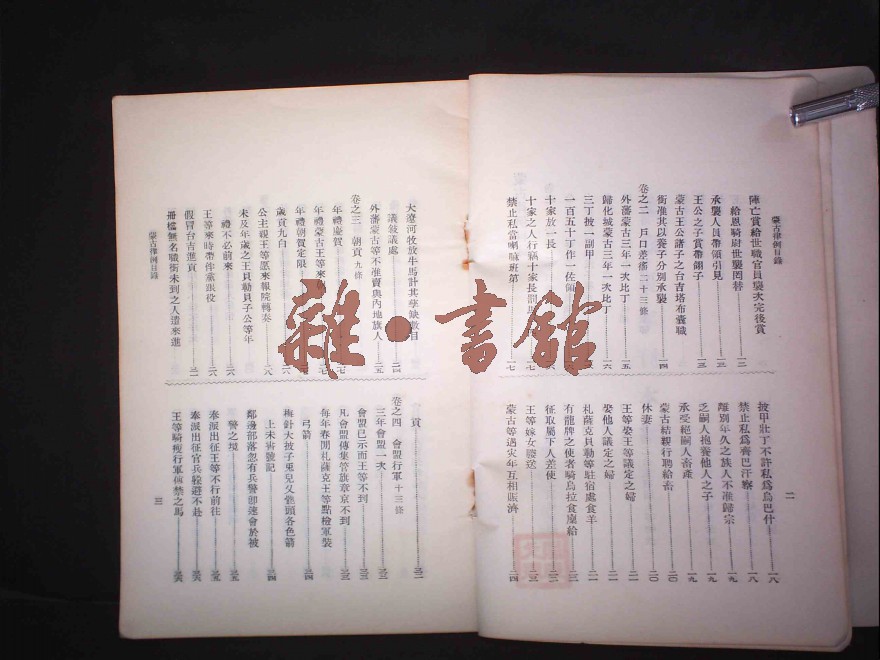 蒙古律例目錄
陣亡賞給世職官員襲次完後賞
給恩騎尉世襲罔替 一二
承襲人員帶領引見 一三
王公之子賞帶翎子 一三
蒙古王公諸子之台吉塔布囊職
銜准其以養子分別承襲 一四
卷之二 戶口差徭二十三條
外藩蒙古三年一次比丁 一五
歸化城蒙古三年一次比丁 一六
三丁披一副甲
一百五十丁作一佐領
十家放一長
十家之人行竊十家長罰
禁止私當喇嘛班第 一七
披甲壯丁不許私為烏巴什 一八
禁止私為齊巴汗察 一八
離別年久之族人不准歸宗 一九
乏嗣人抱養他人之子 一九
承受絕嗣人畜產 一九
蒙古結親行聘給畜 二〇
休妻 二〇
王等娶王等議定之婦 二一
娶他人議定之婦 二一
札薩克貝勒等駐宿處食羊 二一
有龍牌之使者騎烏拉食廩給
征取屬下人差使
王等嫁女媵送
蒙古等遇灾年互相賑濟 二四
二
大遼河牧放牛馬計其孳缺數目
議敍議處 二四
外藩蒙古等不准賣與內地旗人 二五
卷之三 朝貢九條
年禮慶賀
年禮蒙古王等來朝
年禮朝賀定限
歲貢九白
公主親王等愿來報院轉奏 二八
未及年歲之王貝勒貝子公等年
禮不必前來
王等來時帶伴當跟役
假冒台吉進貢
冊檔無名職銜未到之人遣來進
貢
卷之四 會盟行軍十三條
三年會盟一次
會盟已示而王等不到
凡會盟傳集管旗章京不到
每年春閒札薩克王等點檢軍裝
弓箭 三四
梅針大披子兎兒叉骲頭各色箭
上未書號記 三四
鄰邊部落忽有兵警卽速會於被
警之境
奉派出征王等不行前往
奉派出征官兵躱避不赴
王等騎瘦行軍傳禁之馬
蒙古律例目錄
三
雜·書館